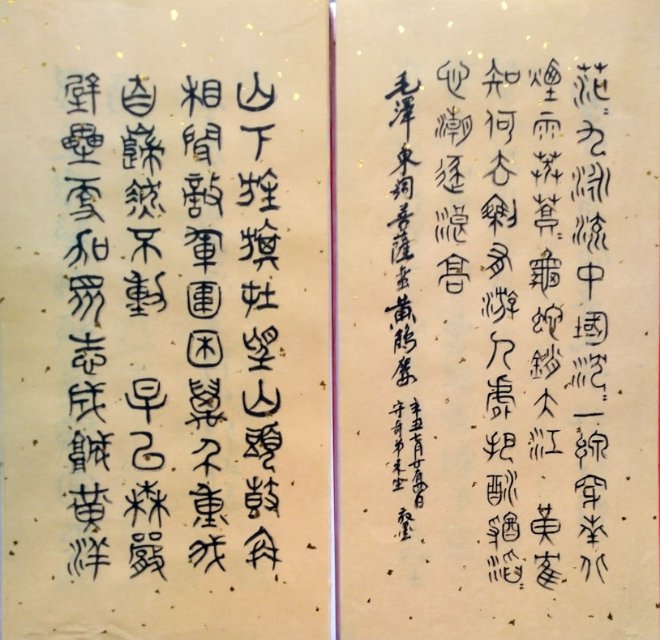 茫〻九派流中國沈〻一線穿南北
煙雨莽蒼〻龜蛇鎖大江 黃鶴
知何去剩有游人處把酒酹滔〻
心潮逐浪高
毛澤東詞菩薩蠻黃鶴樓
辛丑七月廿
山下旌旗在望山頭鼓角
相聞敵軍圍困萬千重我
自巋然不動 早已森嚴
壁壘更加眾志成城黃洋